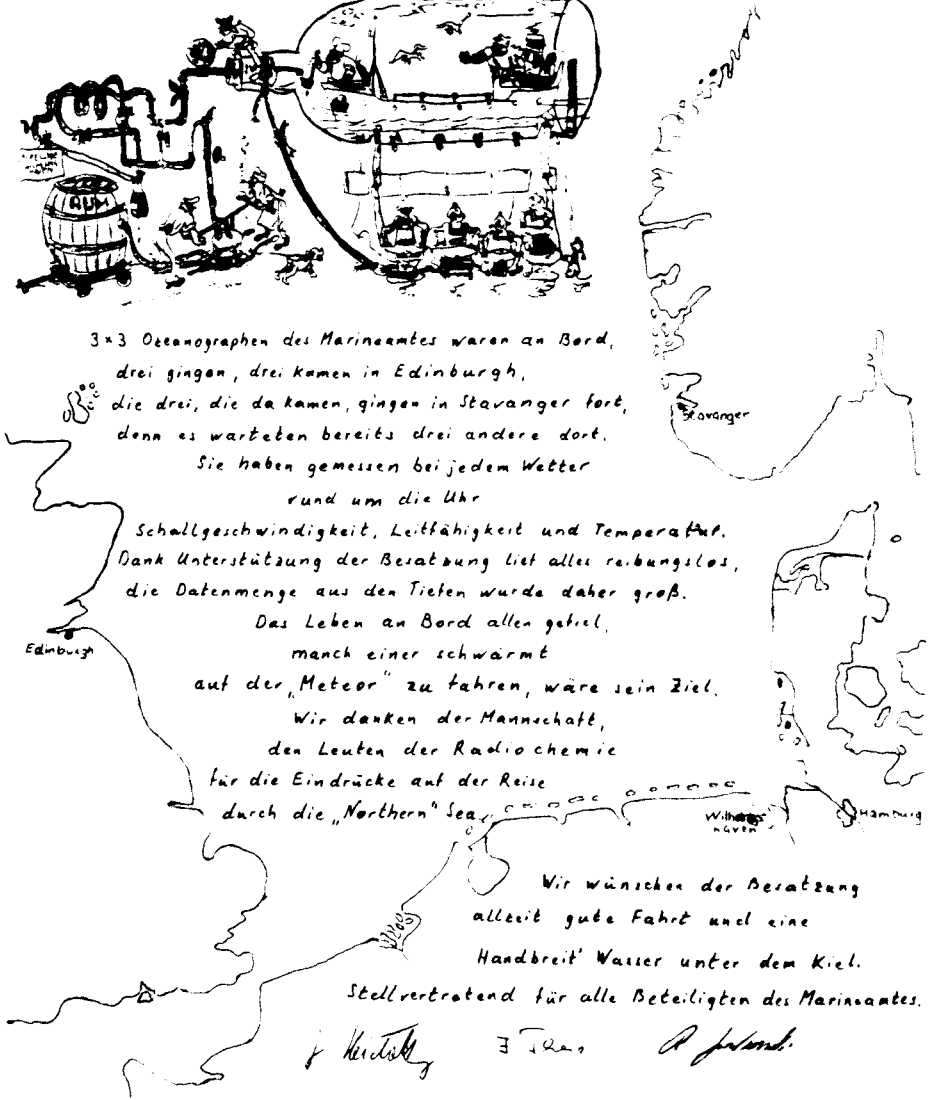 RUM
3×3 Ozeanographen des Marineamtes waren an Bord,
drei gingen, drei kamen in Edinburgh,
die drei, die da kamen, gingen in Stavanger fort,
denn es warteten bereits drei andere dort.
Stavanger
Sie haben gemessen bei jedem Wetter
rund um die Uhr
Schallgeschwindigkeit, Leitfähigkeit und Temperatur.
Dank Unterstützung der Besatzung lief alles reibungslos,
die Datenmenge aus den Tiefen wurde daher groß.
Das Leben an Bord allen gefiel,
Edinburgh
manch einer schwärmt
auf der „Meteor" zu fahren, wäre sein Ziel.
Wir danken der Mannschaft,
den Leuten der Radiochemie
für die Eindrücke auf der Reise
durch die „Northern" Sea.
Wilhelmshaven
Hamburg
Wir wünschen der Besatzung
allzeit gute Fahrt und eine
Handbreit' Wasser unter dem Kiel.
Stellvertretend für alle Beteiligten des Marineamtes.